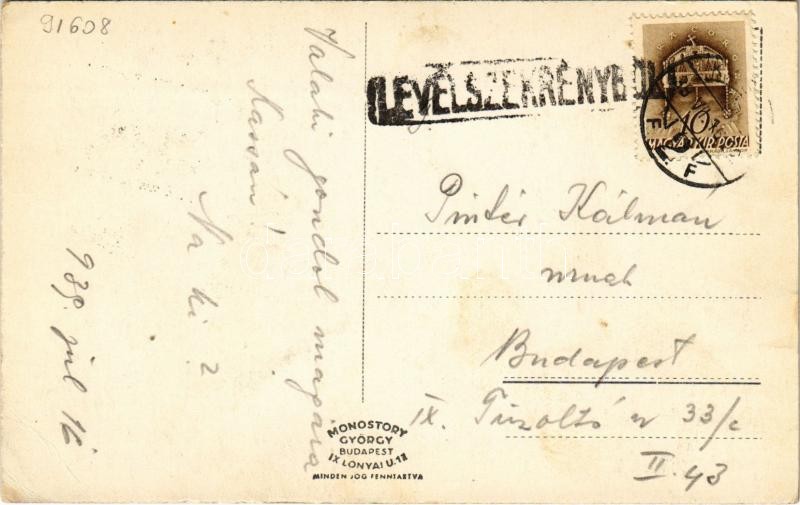 91608
Valaki gondol magára
Kassán!
Na ki?
939. júl 16
(LEVÉLSZEKRÉNYBŐL
10
MAGYAR KIR. POSTA
Pintér Kálmán
urnak
Budapest
IX. Tűzoltó u 33/c
II. 43
MONOSTORY
GYÖRGY
BUDAPEST
IX LÓNYAI U. 13
MINDEN JOG FENNTARTVA